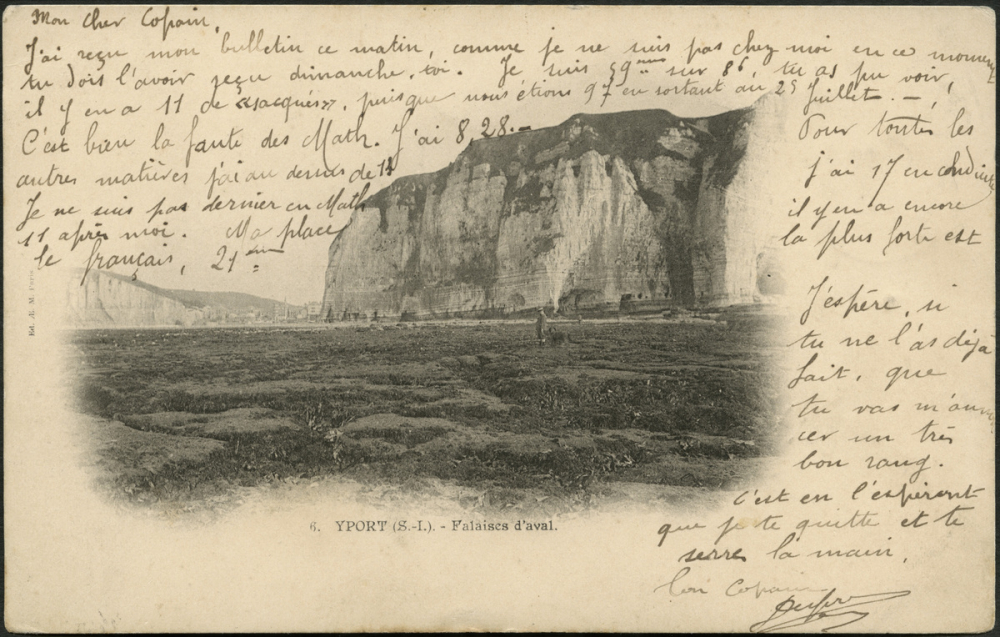 Mon cher Copain,
J'ai reçu mon bulletin ce matin, comme je ne suis pas chez moi en ce moment
tu dois l'avoir reçu dimanche, toi. Je suis 59ème sur 86, tu as pu voir,
il y en a 11 de «sacqués», puisque nous étions 97 en sortant au 25 Juillet. —
C'est bien la faute des Math. J'ai 8,28. — Pour toutes les
autres matières j'ai au dessus de 11 j'ai 17 en conduite
Je ne suis pas dernier en Math il y en a encore
11 après moi. Ma place la plus forte est
le français, 21ème
J'espère, si
tu ne l'as déjà
fait, que
tu vas m'annon
cer un très
bon rang.
C'est en l'espérant
que je te quitte et te
serre la main.
Ton Copain
Ed. E. M. Paris
6. YPORT (S.-I.). - Falaises d'aval.